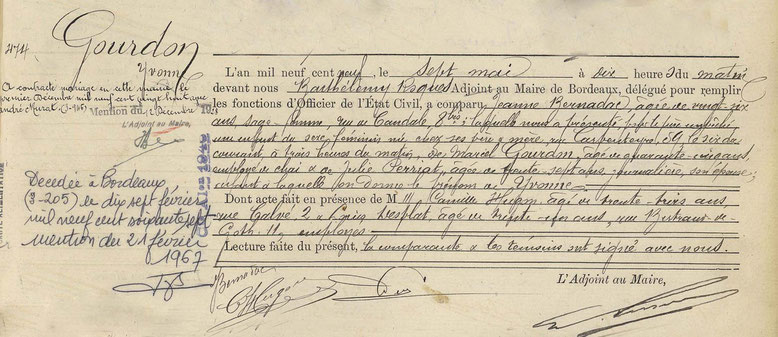 474
Gourdon
Yvonne
A contracté mariage en cette mairie le
premier Décembre mil neuf cent vingt huit avec
André Murat
Mention du 2 Décembre 1928
L'Adjoint au Maire,
Décédée à Bordeaux
le dix sept février
mil neuf cent soixante sept
mention du 21 février
1967
L'an mil neuf cent neuf, le sept mai à dix heures du matin
devant nous Barthélemy Roques Adjoint au Maire de Bordeaux, délégué pour remplir
les fonctions d'Officier de l'État Civil, a comparu Jeanne Bernadac, âgée de vingt-six
ans, sage-femme, rue de Candale 8 bis; laquelle nous a présenté, pour le père empêché,
un enfant de sexe féminin né chez ses père & mère, rue Carpenteyre, 59, le six du
courant, à trois heures du matin, de Marcel Gourdon, âgé de quarante ans,
employé de chai & de Julie Perriat, âgée de trente-sept ans, journalière, son épouse;
enfant à laquelle on donne le prénom de Yvonne;
Dont acte fait en présence de M Camille Hugon, âgé de trente-trois ans,
rue Calvé 2 & Desplat, âgé de ans, rue Bertrand-de-
Goth, 11, employés
Lecture faite du présent, la comparante & les témoins ont signé avec nous.
Bernadac
L'Adjoint au Maire,